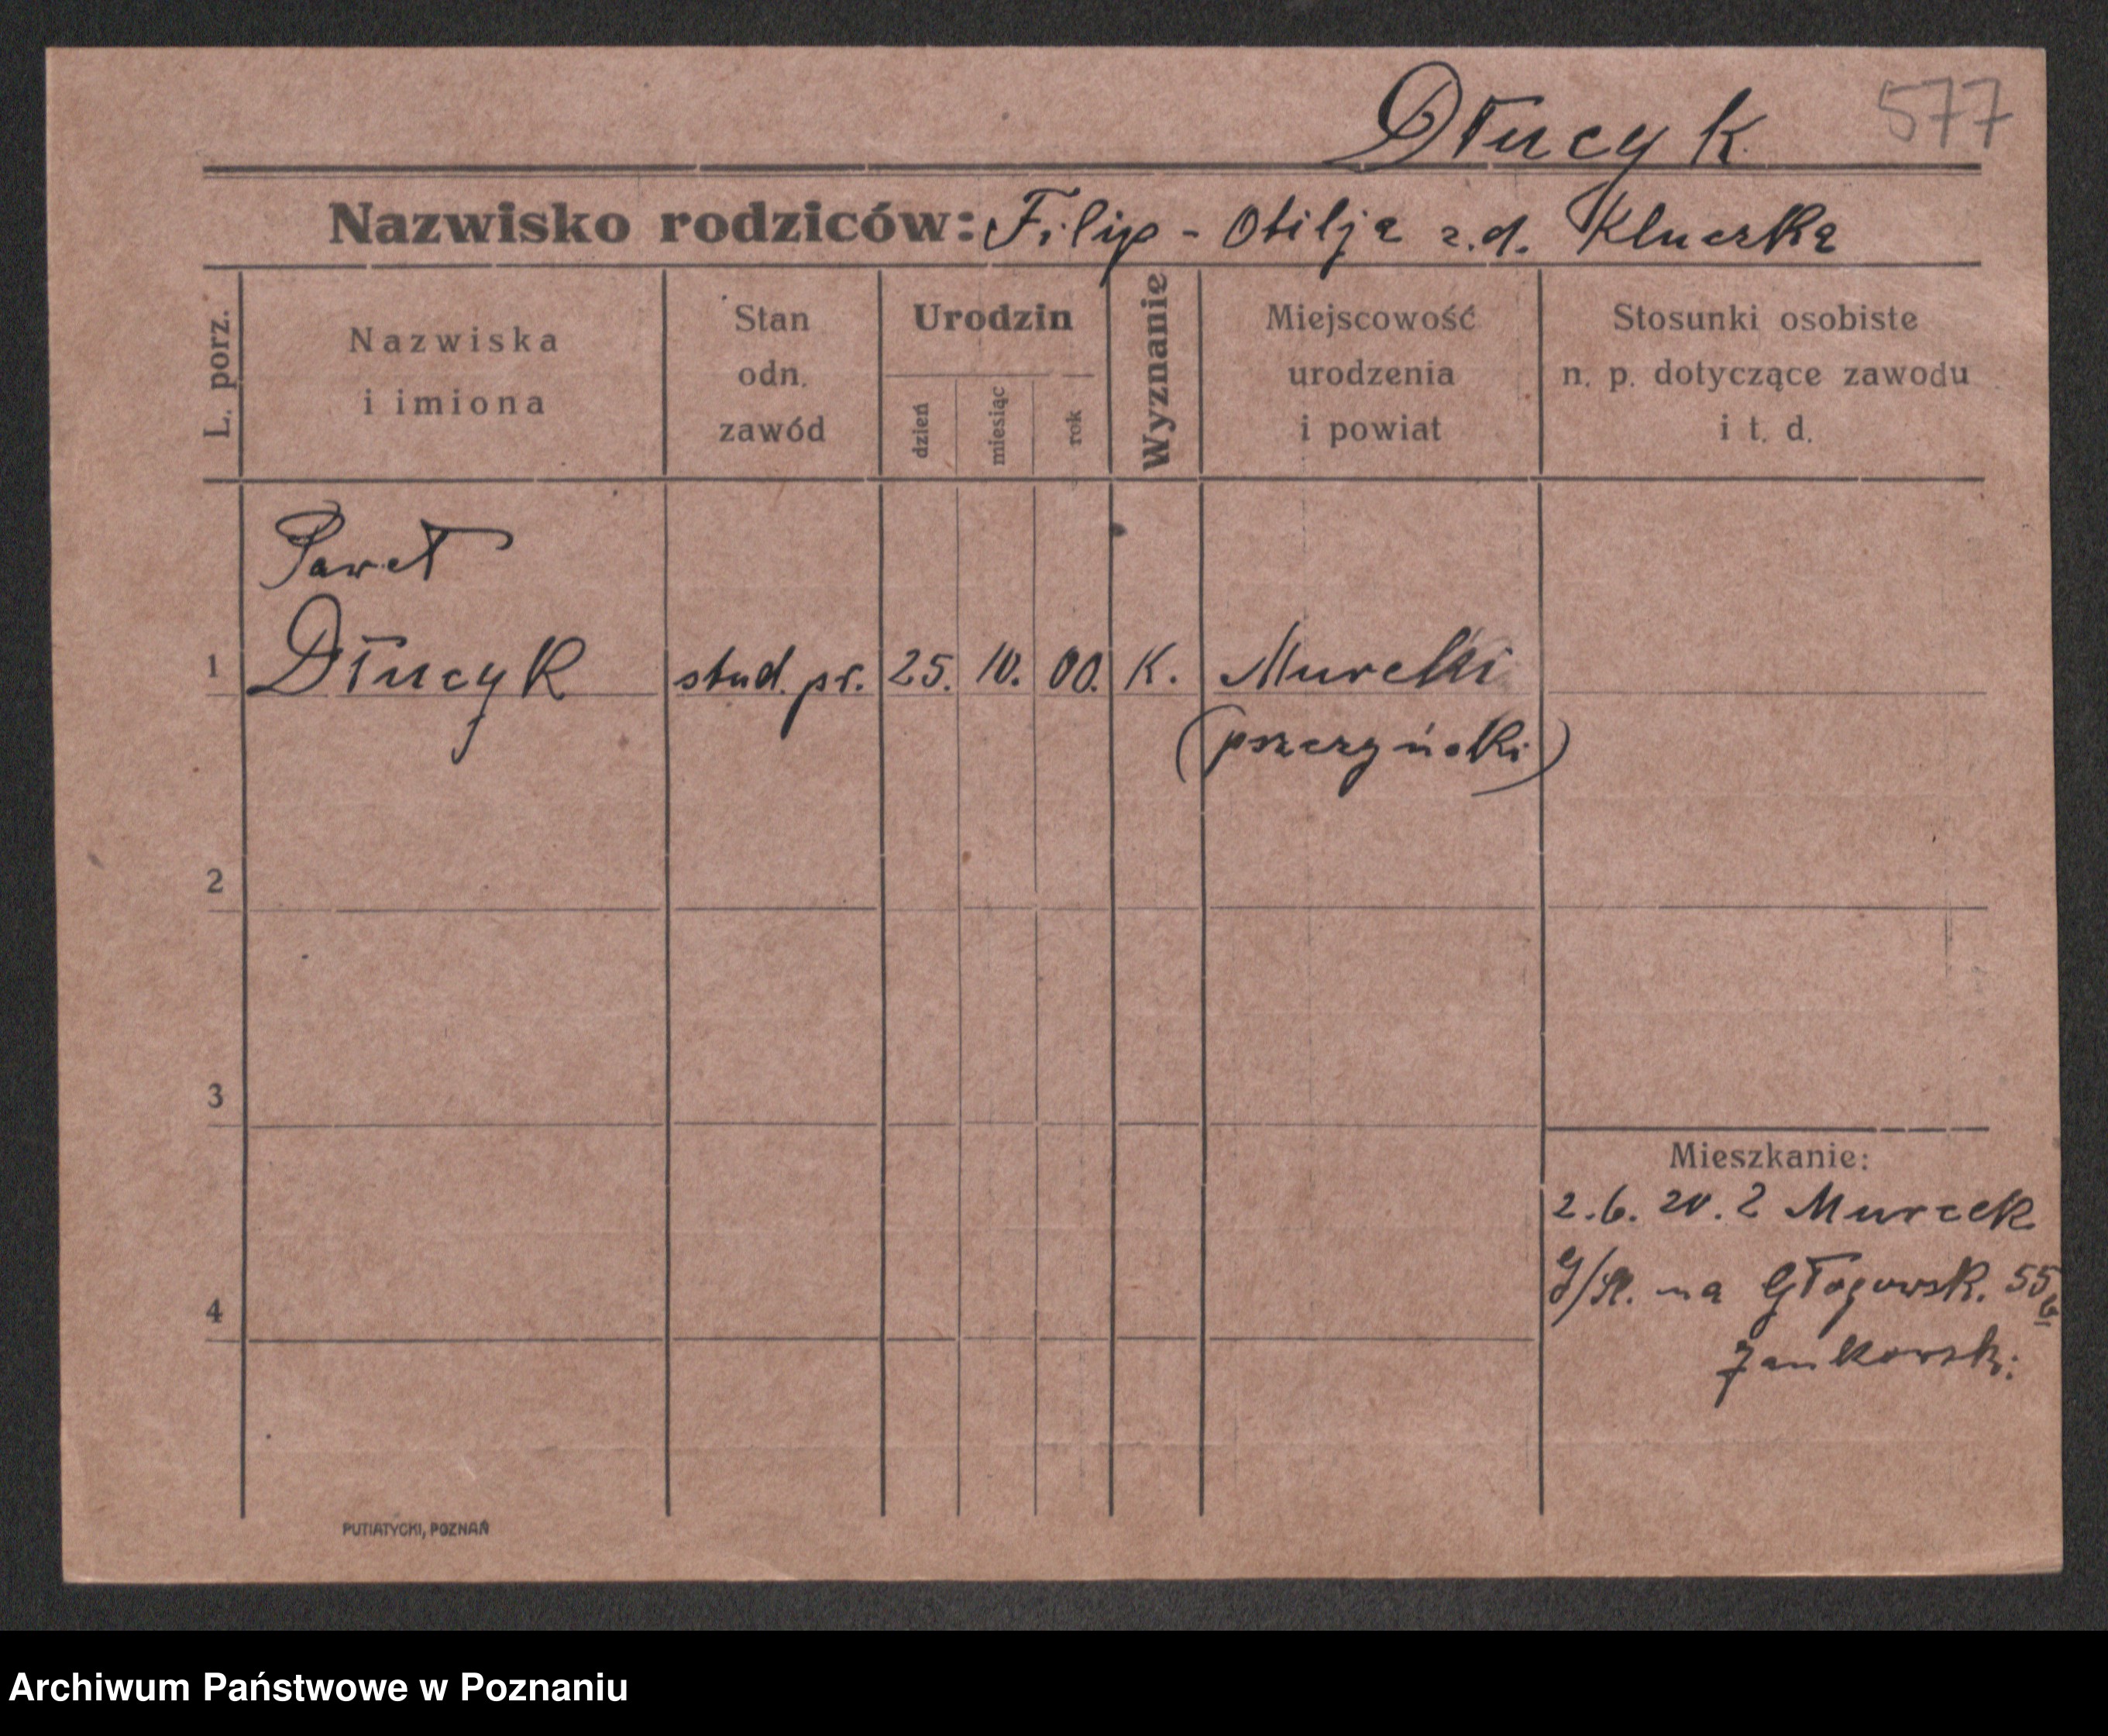 Dłucyk 577
Nazwisko rodziców: Filip - Otilja z.d. Kluczka
L. porz.
Nazwiska
i imiona
Stan
odn.
zawód
Urodzin
dzień
miesiąc
rok
Wyznanie
Miejscowość
urodzenia
i powiat
Stosunki osobiste
n. p. dotyczące zawodu
i t. d.
Paweł
1 Dłucyk stud. pr. 25. 10. 00. K. Murcki
(pszczyński)
2
3
Mieszkanie:
2.6. 20. z Murcek
G/Śl. na Głogowsk. 55
4
Jankowski
PUTIATYCKI, POZNAŃ
Archiwum Państwowe w Poznaniu